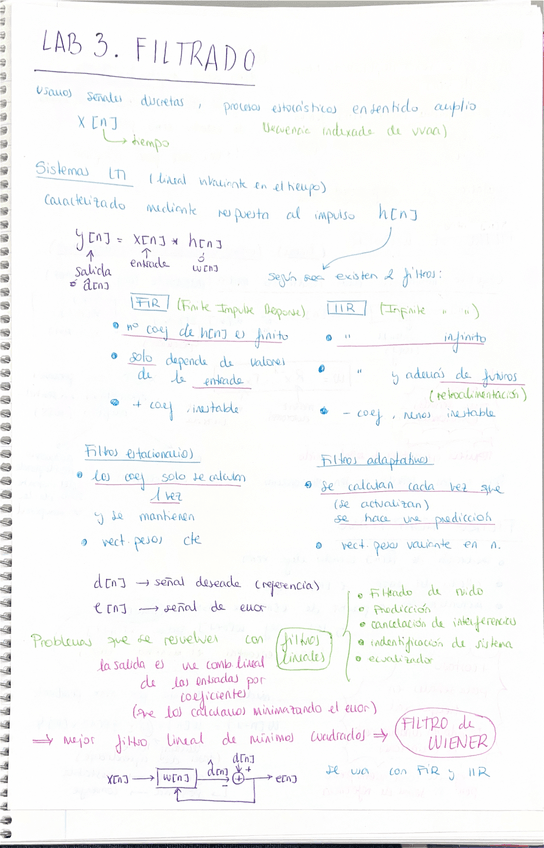 LAB 3. FILTRADO
usamos señales discretas, procesos estocásticos en sentido amplio
x[n]
(secuencia indexada de vvaa)
tiempo
Sistemas LTI (lineal invariante en el tiempo)
caracterizado mediante respuesta al impulso h[n]
y[n] = x[n] * h[n]
salida entrada ó w[n]
ó d̂[n]
según sea existen 2 filtros:
FIR (Finite Impulse Response) IIR (Infinite " ")
• nº coef de h[n] es finito • " infinito
• solo depende de valores
de la entrada • " y además de futuros
(retroalimentación)
• + coef, inestable • - coef, menos inestable
Filtros estacionarios Filtros adaptativos
• los coef solo se calculan • se calculan cada vez que
1 vez (se actualizan)
y se mantienen se hace una predicción
• vect. pesos cte • vect. pesos variante en n.
d[n] → señal deseada (referencia)
e[n] → señal de error
• Filtrado de ruido
• Predicción
• cancelación de interferencias
• indentificación de sistema
• ecualizador
Problemas que se resuelven con filtros lineales
la salida es una comb lineal
de las entradas por
coeficientes
(que los calculamos minimazando el error)
⇒ mejor filtro lineal de mínimos cuadrados ⇒ FILTRO de WIENER
x[n] → w[n] d̂[n] - + d[n] + → e[n]
se usa con FIR y IIR